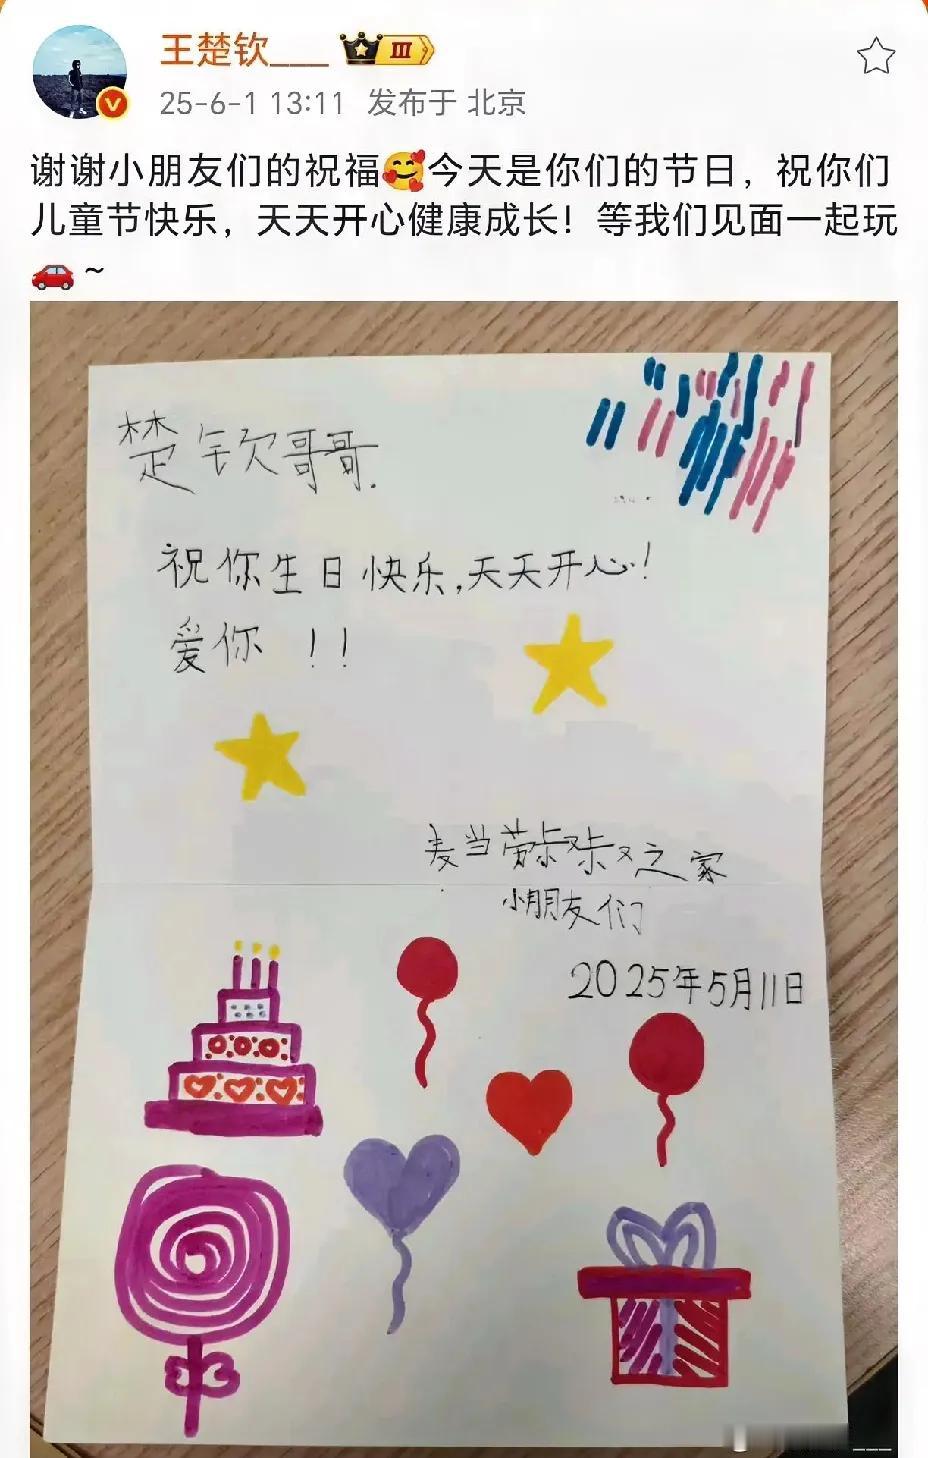 王楚钦___ III
25-6-1 13:11 发布于 北京
谢谢小朋友们的祝福🥰今天是你们的节日，祝你们
儿童节快乐，天天开心健康成长！等我们见面一起玩
🚗～
楚钦哥哥.
祝你生日快乐,天天开心!
爱你 !!
麦当劳叔叔之家
小朋友们
2025年5月11日